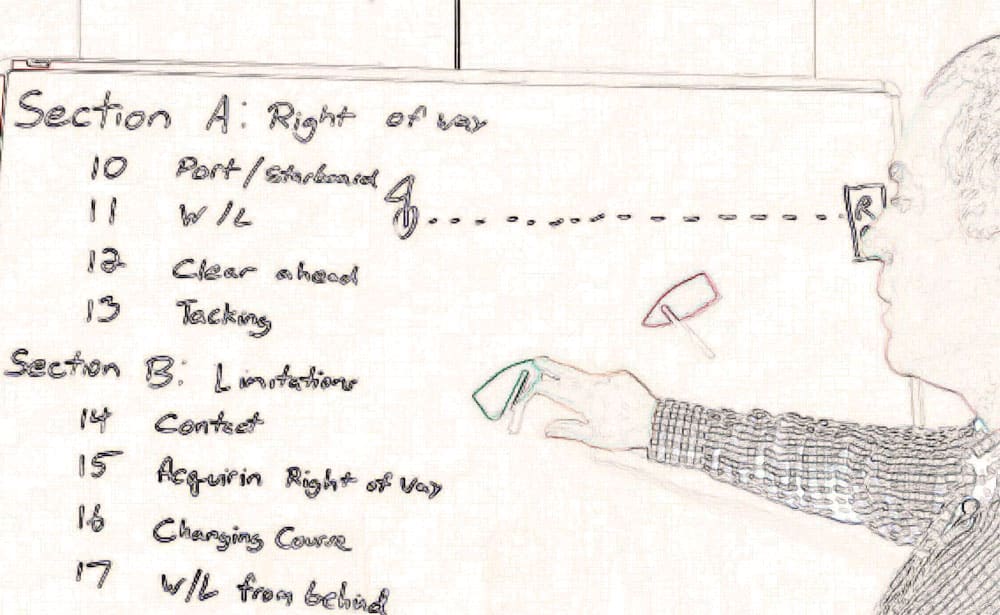 Section A: Right of way
10 Port/Starboard
11 W/L
12 Clear ahead
13 Tacking
R
Section B: Limitations
14 Contact
15 Acquirin Right of way
16 Changing Course
17 W/L from behind